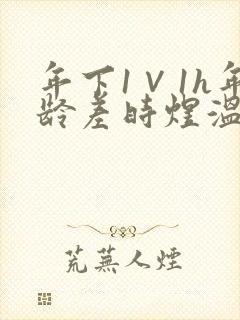 年下1V1h年
龄差时煜温
荒蕪人煙